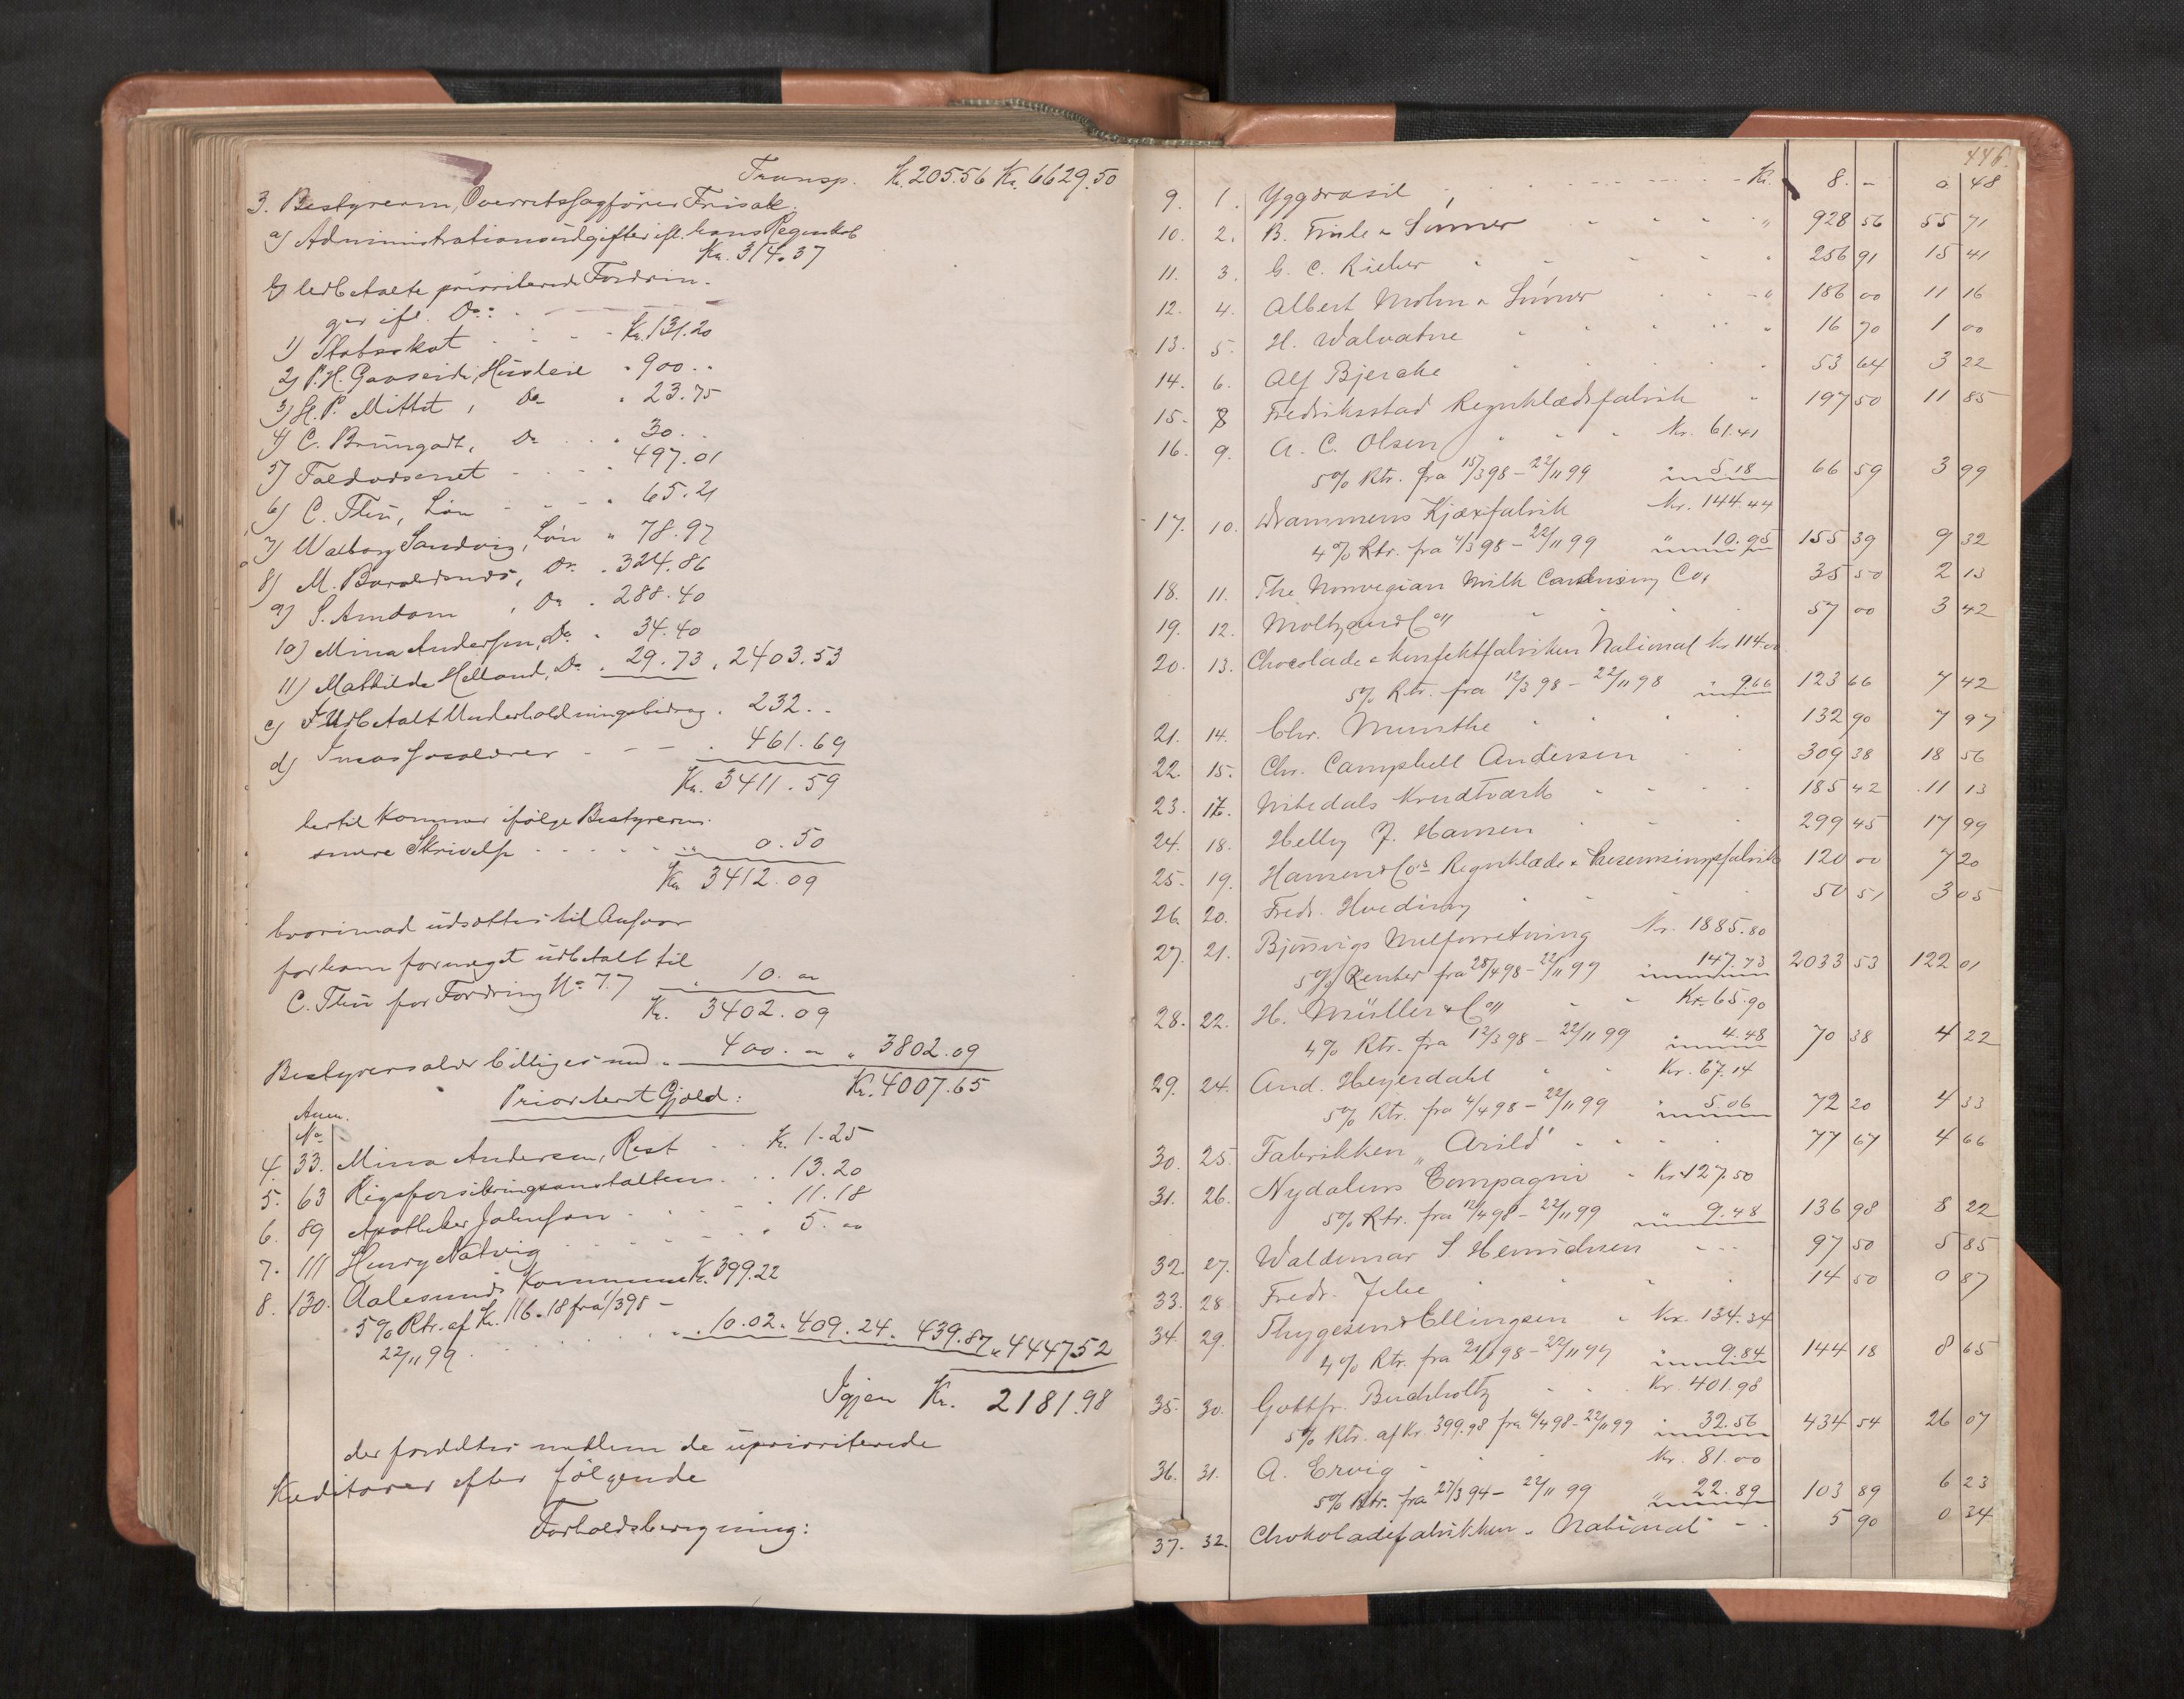 Transp. Kr. 205.56 Kr. 6629.50
3. Bestyreren, Overretssagfører Frisak.
a) Administrationsudgifter ifl. hans Regnskab
Kr. 314.37
b) Udbetalte prioriterede Fordrin-
ger ifl. Do:
1) Statsskat - - - Kr. 131.20
2) P. H. Gaaseide, Husleie " 900. -
3) H. P. Mittet, Do " 23.75
4) C. Brungodt, Do . . " 30. -
5) Faldvæsenet - - - " 497.01
6) C. Flem, Løn - - - " 65.21
7) Walborg Sandvig, Løn " 78.97
8) M. Do. " 324.86
9) S. Amdam, Do " 288.40
10) Mina Andersen, Do. " 34.40
11) Mathilde Helland, Do " 29.73 " 2403.53
c) Udbetalt Underholdningsbidrag . 232. -
d) Incassosalærer - - - . 461.69
Kr. 3411.59
hertil kommer ifølge Bestyrerens
senere Skrivelse - - - - - " 0.50
Kr. 3412.09
hvorimod udsættes til Ansvar
for ham formeget udbetalt til
C. Flem for Fordring No 77 " 10. "
Kr. 3402.09
Bestyrersalær billiges med " 400. " " 3802.09
Kr. 4007.65
Prioritert Gjæld:
Anm.
No
4. 33. Mina Andersen, Rest - - Kr. 1.25
5. 63 Rigsforsikringsanstalten . . " 13.20
6. 89 Apotheker Johnson - - - " 11.18
7. 111 Henry Natvig - - - - " 5. "
8. 130. Aalesunds Kommune Kr. 399.22
5% Rtr. af Kr. 116.18 fra 1/3 98 -
22/11 99 . . . . " 10.02 " 409.24 " 439.87 " 4447 52
Igjen Kr. 2181.98
der fordeltes mellem de uprioriterede
Kreditorer efter følgende
Forholdsberegning:
446.
9. 1. Yggdrasil - - - - Kr. 8. " 0 48
10. 2. B. Friele & Sønner " 928 56 55 71
11. 3. G. C. Rieber " 256 91 15 41
12. 4. Albert Mohn & Sønner " 186 00 11 16
13. 5. H. Walvatne " 16 70 1 00
14. 6. Alf Bjercke " 53 64 3 22
15. 8 Fredriksstad Regnklædsfabrik " 197 50 11 85
16. 9. A. C. Olsen Kr. 61.41
5% Rtr. fra 15/3 98 - 22/11 99 " 5.18 66 59 3 99
17. 10. Drammens Kjæxfabrik Kr. 144.44
4% Rtr. fra 4/3 98 - 22/11 99 " 10.95 155 39 9 32
18. 11. The Norwegian Milk Condensing Co. 35 50 2 13
19. 12. Moltzau & Co 57 00 3 42
20. 13. Chocolade & Konfektfabriken National Kr 114.00
5% Rtr. fra 12/3 98 - 22/11 98 " 9.66 123 66 7 42
21. 14. Chr. Munthe 132 90 7 97
22. 15. Chr. Campbell Andersen 309 38 18 56
23. 17. Nitedals Krudtværk 185 42 11 13
24. 18. Helly J. Hansen 299 45 17 99
25. 19. Hansen & Co's Regnklæde & Presenningsfabrik 120 00 7 20
26. 20. Fredr. Hveding 50 51 3 05
27. 21. Bjørsvigs Melforretning Kr. 1885.80
5% Renter fra 28/4 98 - 22/11 99 " 147.73 2033 53 122 01
28. 22. H. Müller & Co Kr. 65.90
4% Rtr. fra 12/3 98 - 22/11 99 " 4.48 70 38 4 22
29. 24. And. Heyerdahl Kr. 67.14
5% Rtr. fra 4/4 98 - 22/11 99 " 5.06 72 20 4 33
30. 25. Fabrikken "Arild" 77 67 4 66
31. 26. Nydalens Compagni " Kr 127.50
5% Rtr. fra 12/4 98 - 22/11 99 " 9.48 136 98 8 22
32. 27. Waldemar S. Henrichsen 97 50 5 85
33. 28 Fredr. Jebe 14 50 0 87
34. 29. Thygesen & Ellingsen " Kr. 134.34
4% Rtr. fra 98 - 22/11 99 " 9.84 144 18 8 65
35. 30. Gottfr. Buchholtz Kr. 401.98
5% Rtr. af Kr. 399.98 fra 6/4 98 - 22/11 99 " 32.56 434 54 26 07
36. 31. A. Ervig Kr. 81.00
5% Rtr. fra 27/3 94 - 22/11 99 " 22.89 103 89 6 23
37. 32. Chokoladefabrikken " National - - 5 90 0 34